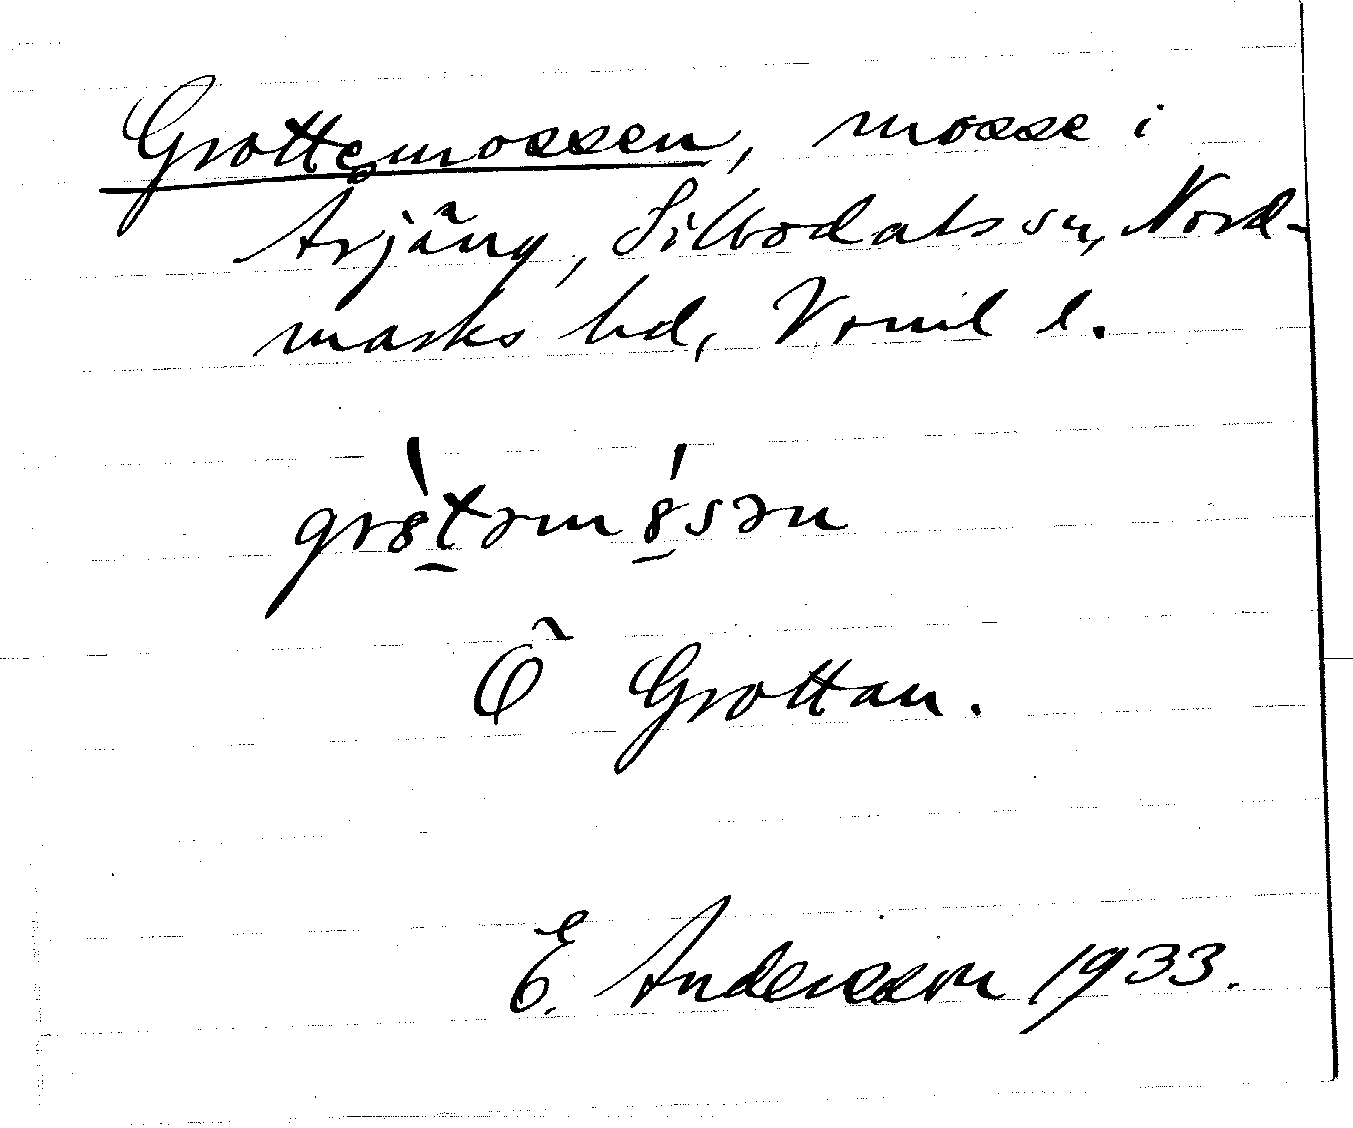 Grottemossen, mosse i
Årjäng, Silbodals sn, Nord-
marks hd, Vrml l.
grò̱təmó̱sən
Õ Grottan.
E. Andersson 1933.